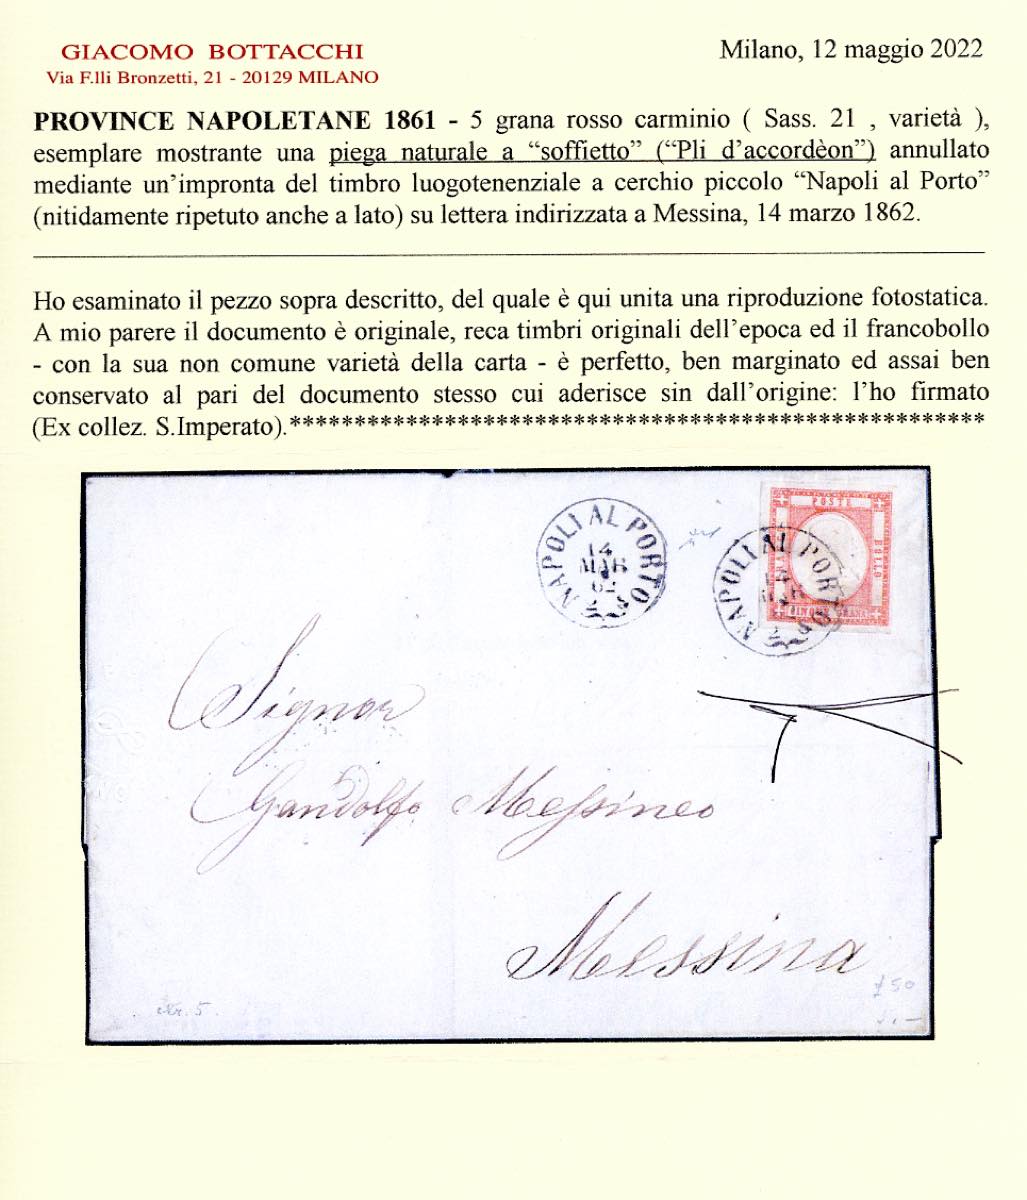 GIACOMO BOTTACCHI
Via F.lli Bronzetti, 21 - 20129 MILANO
Milano, 12 maggio 2022
PROVINCE NAPOLETANE 1861 - 5 grana rosso carminio ( Sass. 21 , varietà ),
esemplare mostrante una piega naturale a “soffietto” (“Pli d’accordèon”) annullato
mediante un’impronta del timbro luogotenenziale a cerchio piccolo “Napoli al Porto”
(nitidamente ripetuto anche a lato) su lettera indirizzata a Messina, 14 marzo 1862.
Ho esaminato il pezzo sopra descritto, del quale è qui unita una riproduzione fotostatica.
A mio parere il documento è originale, reca timbri originali dell’epoca ed il francobollo
- con la sua non comune varietà della carta - è perfetto, ben marginato ed assai ben
conservato al pari del documento stesso cui aderisce sin dall’origine: l’ho firmato
(Ex collez. S.Imperato).*****************************************************
NAPOLI AL PORTO
14
MAR
62
POSTE
BOLLO
NAPOLI AL PORTO
Signor
Gandolfo Messineo
Messina